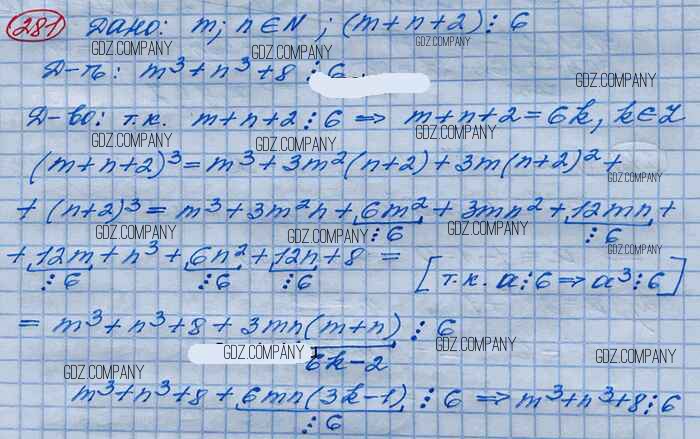 281 Дано: m; n ∈ N; (m+n+2) ⋮ 6
GDZ.COMPANY GDZ.COMPANY GDZ.COMPANY
Д-ть: m³+n³+8 ⋮ 6
GDZ.COMPANY
Д-во: т.к. m+n+2 ⋮ 6 => m+n+2 = 6k, k ∈ Z
GDZ.COMPANY GDZ.COMPANY GDZ.COMPANY
(m+n+2)³ = m³+3m²(n+2)+3m(n+2)²+
GDZ.COMPANY GDZ.COMPANY GDZ.COMPANY
+(n+2)³ = m³+3m²n+6m²+3mn²+12mn+
GDZ.COMPANY GDZ.COMPANY ⋮6 GDZ.COMPANY ⋮6
+12m+n³+6n²+12n+8 = [т.к. a⋮6 => a³⋮6]
GDZ.COMPANY
⋮6 ⋮6 ⋮6
= m³+n³+8+3mn(m+n) ⋮ 6
GDZ.COMPANY GDZ.COMPANY GDZ.COMPANY
6k-2
GDZ.COMPANY
m³+n³+8+6mn(3k-1) ⋮ 6 => m³+n³+8⋮6
⋮6